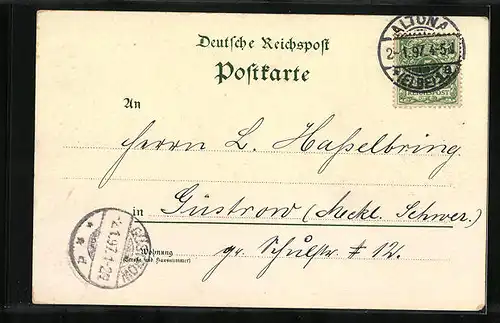 Deutsche Reichspost
Postkarte
ALTONA
2.1.97. 4-5 N
* (ELBE) 1 a
REICHSPOST
An
Herrn L. Haßelbring
in Güstrow (Meckl. Schwer.)
Wohnung
(Straße und Hausnummer)
gr. Schulstr # 12.
GÜSTROW
2.1.97.